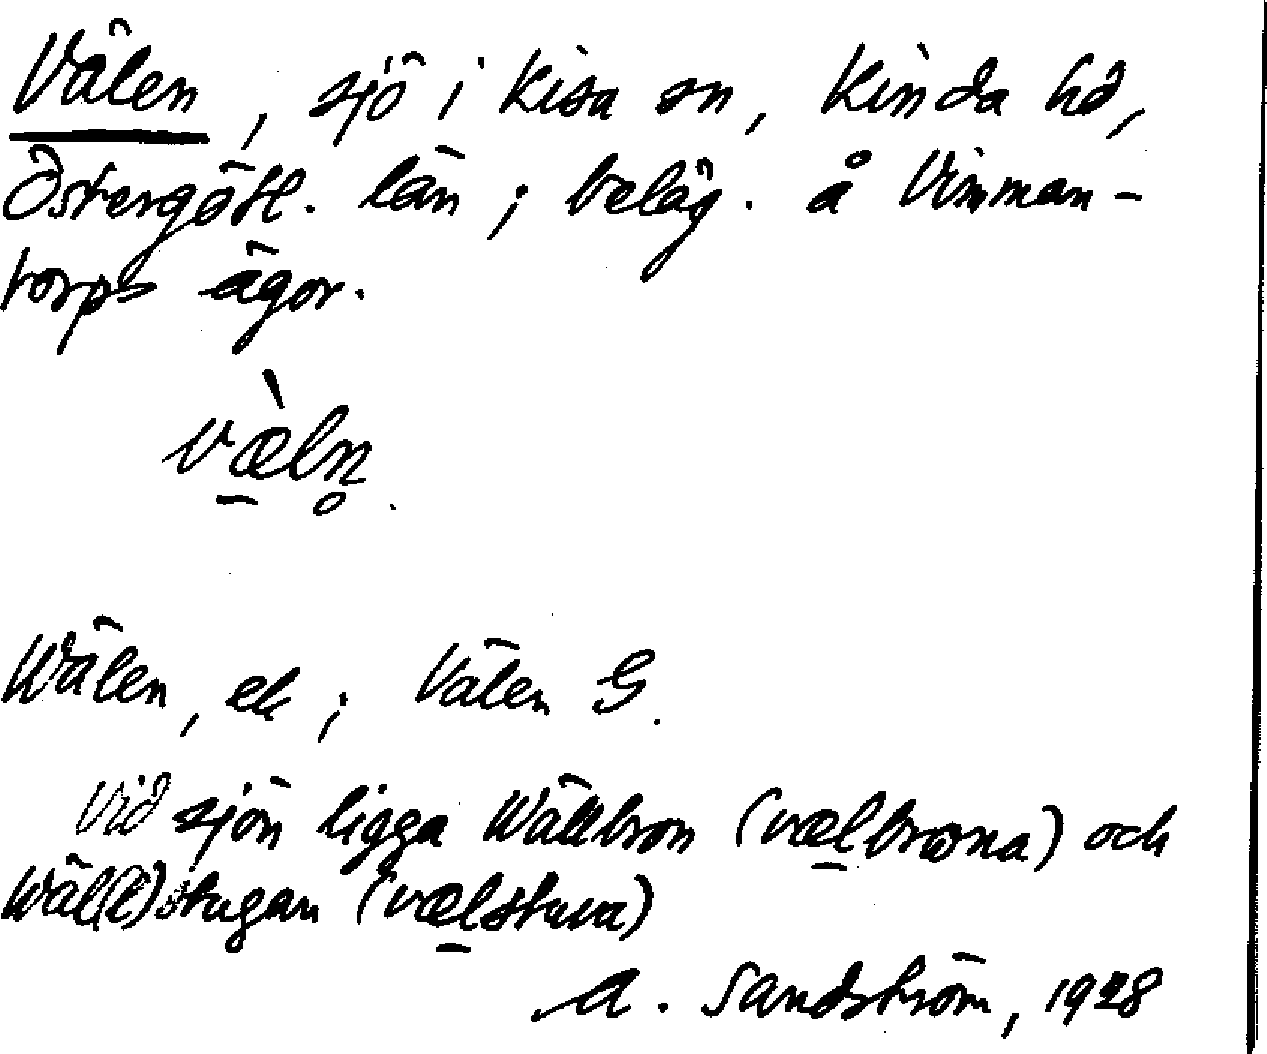 Välen, sjö i Kisa sn, Kinda hd,
Östergötl. län; beläg. å Vimman-
torps ägor.
væ̠̀ln̥.
Wälen, ek; Välen G.
Vid sjön ligga Wällbron (væ̠lbrona) och
Wäl(l)stugan (væ̠lstuva)
A. Sandström, 1928